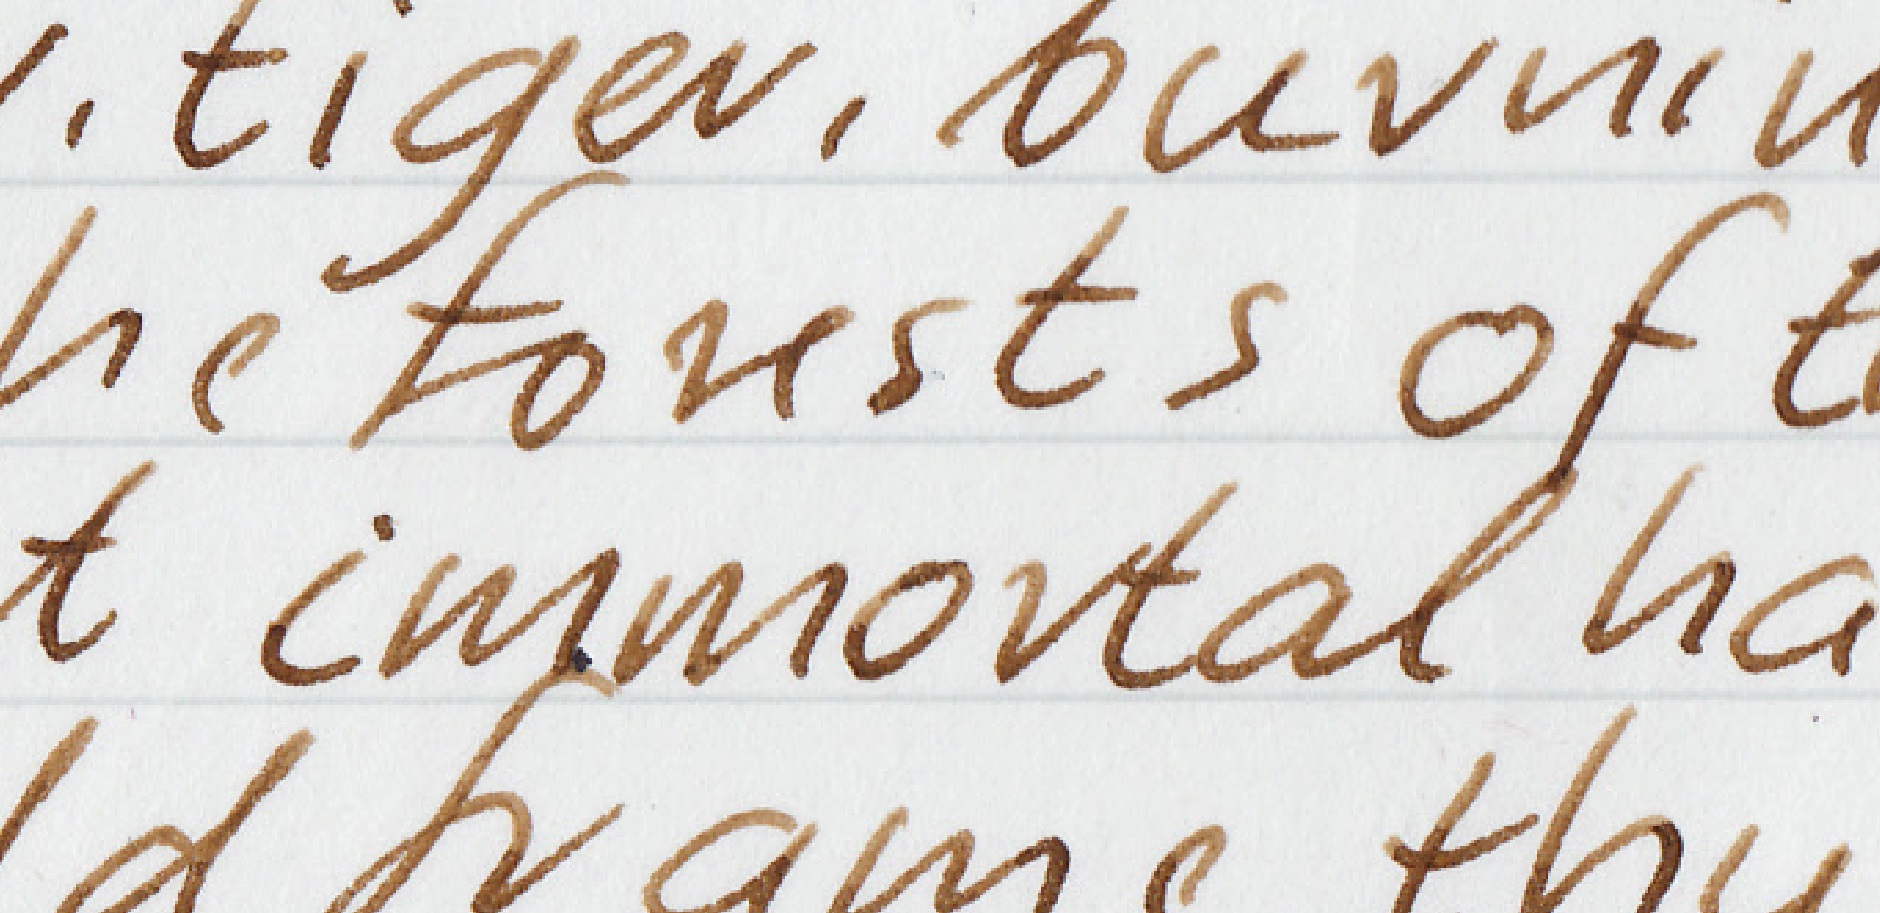 r, tiger, burnin
he forests of th
t immortal ha
ld frame thy